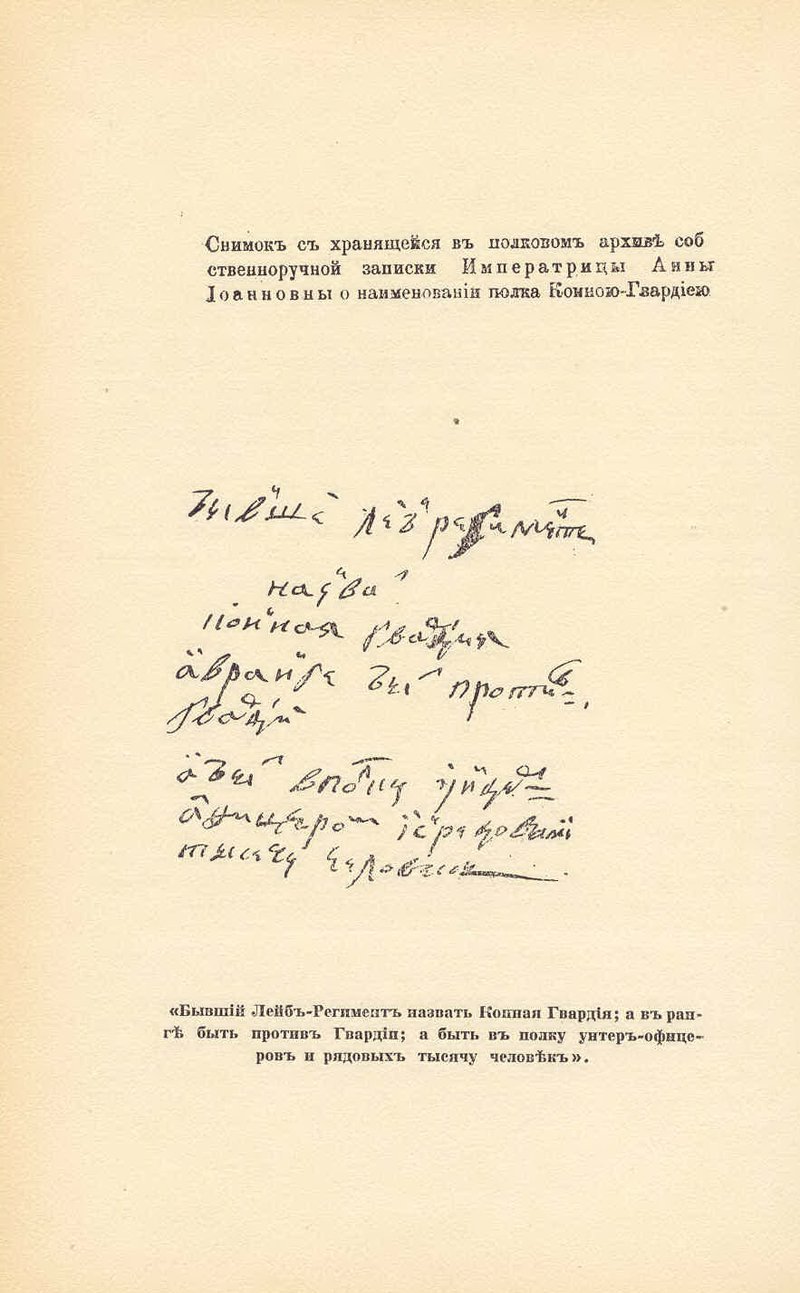 Снимокъ съ хранящейся въ полковомъ архивѣ соб
ственноручной записки Императрицы Анны
Іоанновны о наименованіи полка Конною-Гвардіею
бывше леб регимент
назва
конная гвардия
а вранге бы проти
гвардии
а бы вполку ундер
афицероф и редовым
тысячу человек
«Бывшій Лейбъ-Региментъ назвать Конная Гвардія; а въ ран-
гѣ быть противъ Гвардіи; а быть въ полку унтеръ-офице-
ровъ и рядовыхъ тысячу человѣкъ».